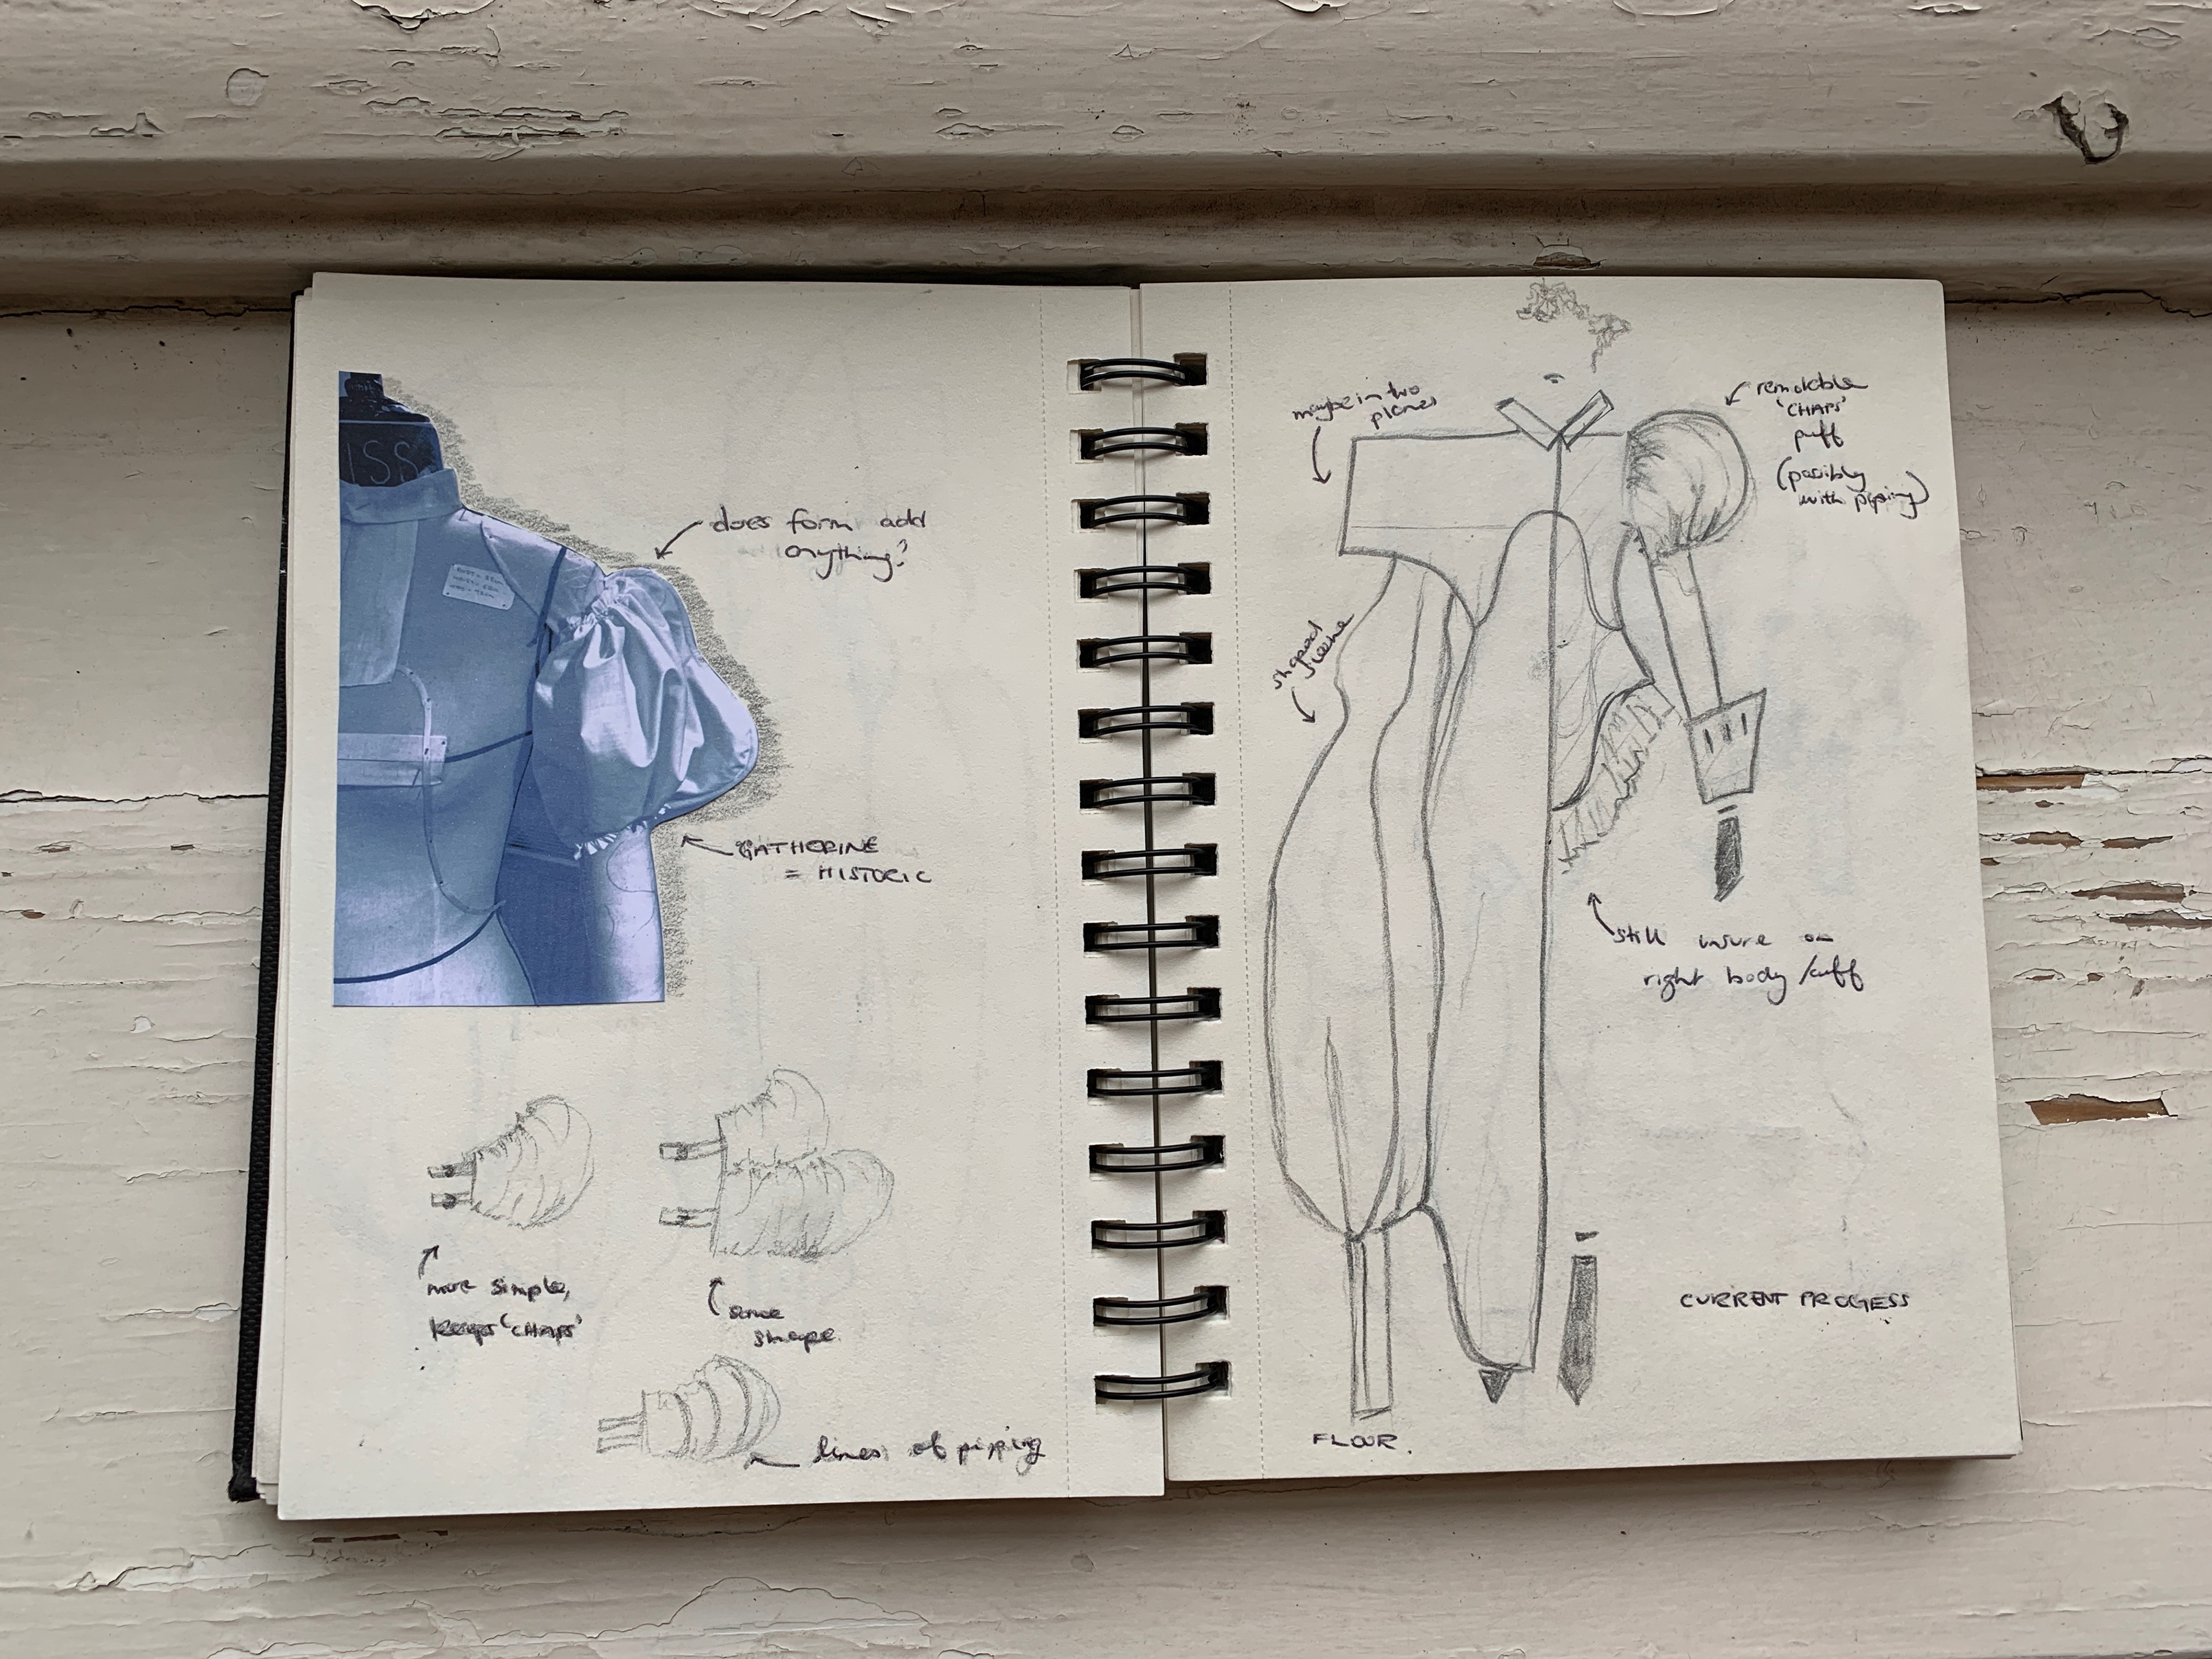 ISS
does form add
anything?
GATHERINE
= HISTORIC
more simple,
keeps 'CHAPS'
same
shape
lines of piping
maybe in two
planes
removable
'CHAPS'
puff
(possibly
with piping)
shaped
sleeve
still unsure on
right body /cuff
CURRENT PROGESS
FLOOR.